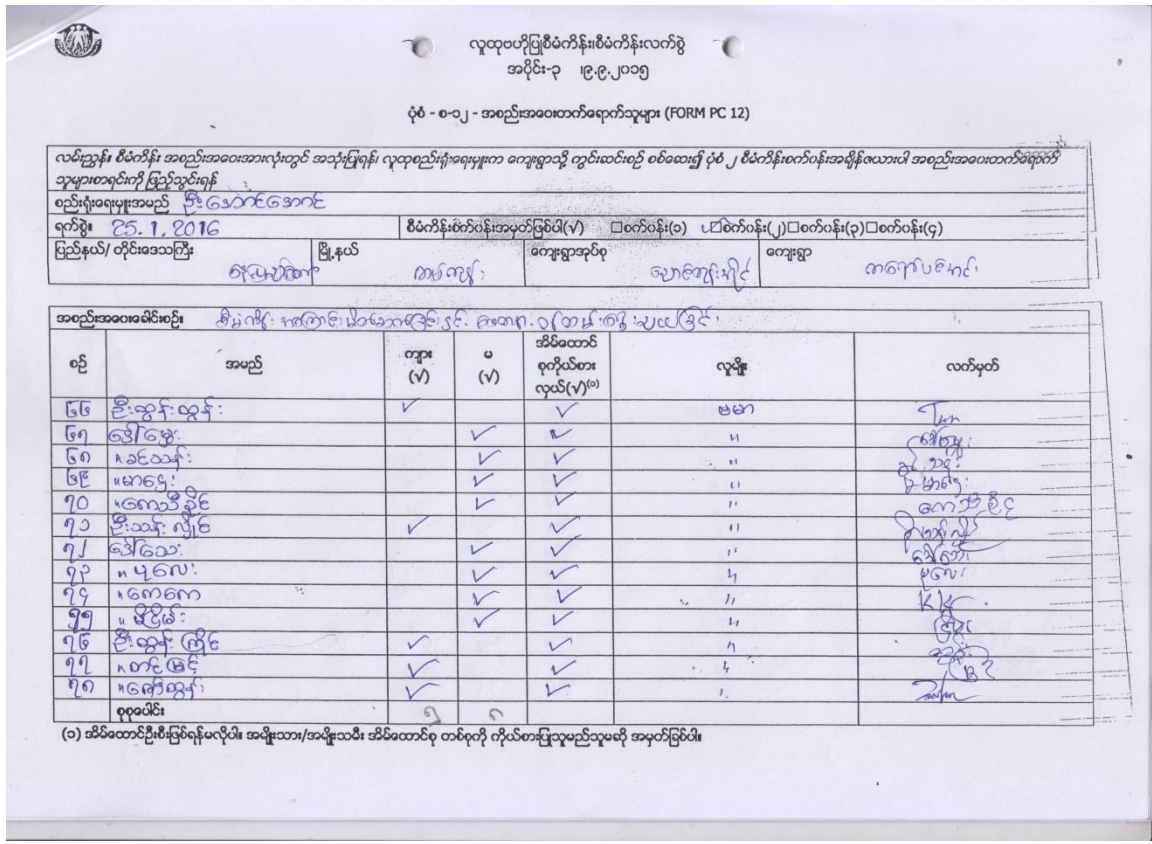 လူထုဗဟိုပြုစီမံကိန်း၊စီမံကိန်းလက်စွဲ
အပိုင်း-၃ ၊၉.၉.၂၀၁၅
ပုံစံ - စ-၁၂ - အစည်းအဝေးတက်ရောက်သူများ (FORM PC 12)
လမ်းညွှန်။ စီမံကိန်း အစည်းအဝေးအားလုံးတွင် အသုံးပြုရန်၊ လူထုစည်းရုံးရေးမှူးက ကျေးရွာသို့ ကွင်းဆင်းစဉ် စစ်ဆေး၍ ပုံစံ ၂ စီမံကိန်းစက်ဝန်းအချိန်ဇယားပါ အစည်းအဝေးတက်ရောက်
သူများစာရင်းကို ဖြည့်သွင်းရန်
စည်းရုံးရေးမှူးအမည် ဦးအောင်အောင်
ရက်စွဲ။ 25.1.2016 စီမံကိန်းစက်ဝန်းအမှတ်ဖြစ်ပါ(√) □စက်ဝန်း(၁) ☑စက်ဝန်း(၂)□စက်ဝန်း(၃)□စက်ဝန်း(၄)
ပြည်နယ်/ တိုင်းဒေသကြီး နေပြည်တော် မြို့နယ် ကျေးရွာအုပ်စု ကျေးရွာ
အစည်းအဝေးခေါင်းစဉ်။ စီမံကိန်းအကြောင်း မိတ်ဆက်ခြင်းနှင့်
စဉ် အမည် ကျား (√) မ (√) အိမ်ထောင်စုကိုယ်စားလှယ်(√)⁽¹⁾ လူမျိုး လက်မှတ်
၆၆ ဦးထွန်းထွန်း ✓ ✓ ဗမာ Tun
၆၇ ဒေါ်မွှေး ✓ ✓ "
၆၈ " ခင်သန်း ✓ ✓ "
၆၉ " မာဌေး ✓ ✓ "
၇၀ " ကေသီခိုင် ✓ ✓ " ကေသီခိုင်
၇၁ ဦးသန်းလှိုင် ✓ ✓ "
၇၂ ဒေါ်သေး ✓ ✓ "
၇၃ " ပုလေး ✓ ✓ " ပုလေး
၇၄ " ကေကေ ✓ ✓ " KK
၇၅ " ✓ ✓ "
၇၆ ဦးထွန်းကြိုင် ✓ ✓ "
၇၇ " တင်မြင့် ✓ ✓ "
၇၈ " ဇော်ထွန်း ✓ ✓ "
စုစုပေါင်း ၅ ၈
(၁) အိမ်ထောင်ဦးစီးဖြစ်ရန်မလိုပါ။ အမျိုးသား/အမျိုးသမီး အိမ်ထောင်စု တစ်စုကို ကိုယ်စားပြုသူမည်သူမဆို အမှတ်ခြစ်ပါ။